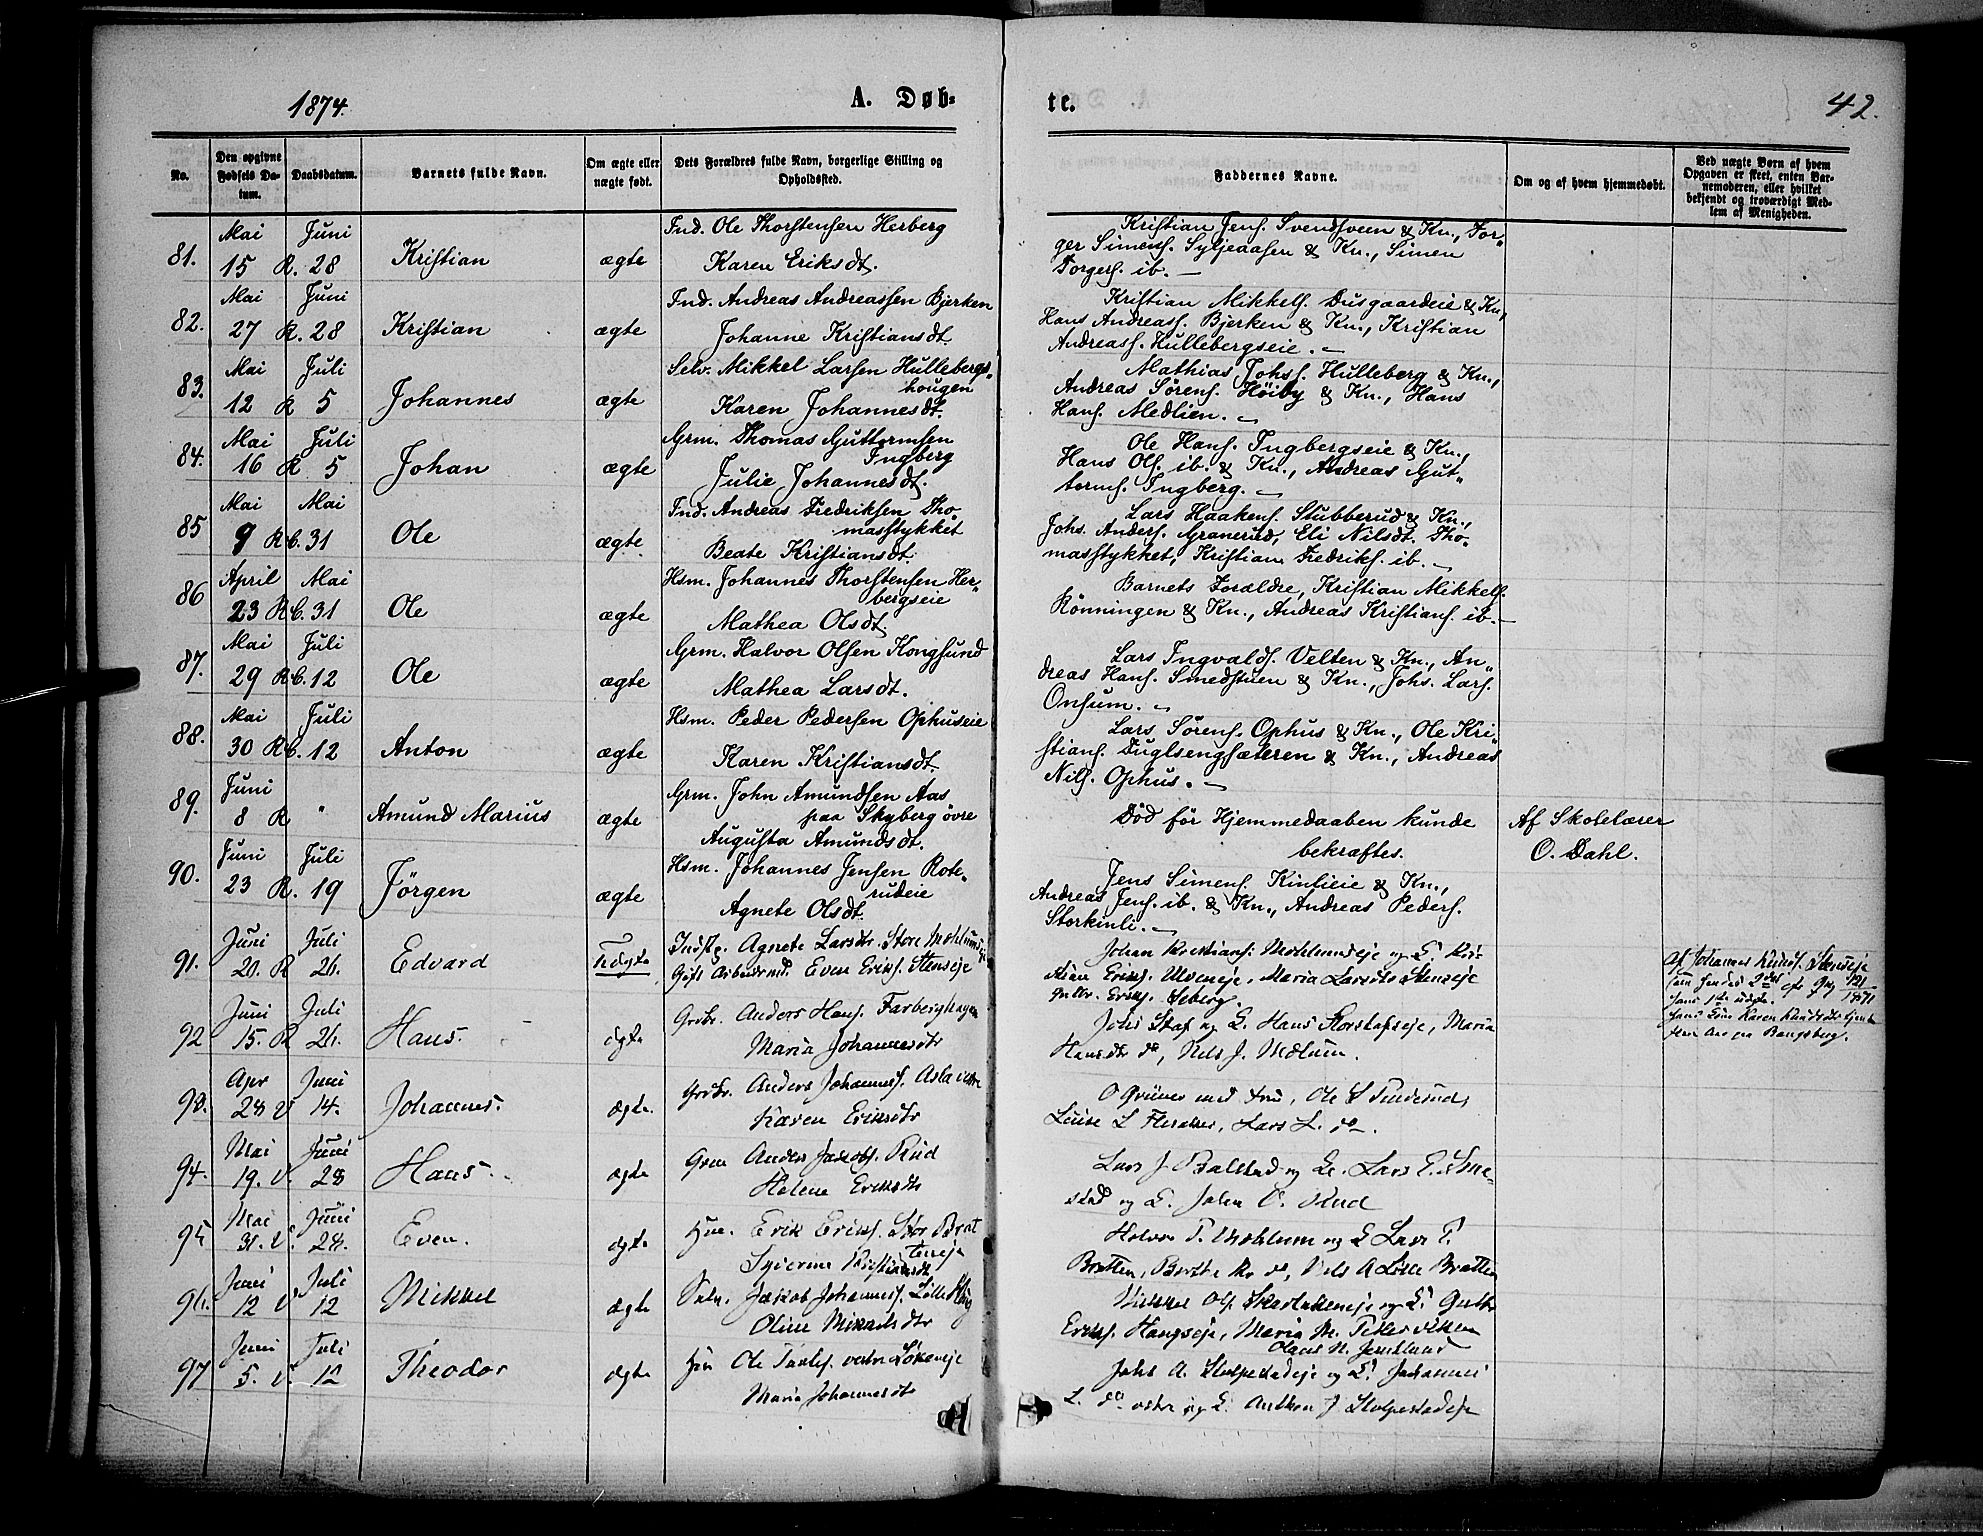 1874.
A. Døb-
te.
42.
No.
Den opgivne Fødsels Da-tum.
Daabsdatum.
Barnets fulde Navn.
Om ægte eller nægte født.
Dets Forældres fulde Navn, borgerlige Stilling og Opholdssted.
Faddernes Navne.
Om og af hvem hjemmedøbt.
Ved nægte Børn af hvem Opgaven er skeet, enten Bar-nemoderen, eller hvilket bekjendt og troværdigt Med-lem af Menigheden.
81. Mai 15 R. Juni 28 Kristian ægte Ind. Ole Thorstensen Herberg
Karen Eriksdt.
Kristian Jens. Svendsveen & Kn., Tor-
ger Simens. Syljeaasen & Kn., Simen
Torgers. ib. –
82. Mai 27 R. Juni 28 Kristian ægte Ind. Andreas Andreassen Bjerken
Johanne Kristiansdt.
Kristian Mikkels. Dusgaardeie & Kn,
Hans Andreass. Bjerken & Kn., Kristian
Andreass. Hullebergseie. –
83. Mai 12 R Juli 5 Johannes ægte Selv. Mikkel Larsen Hullebergs-
hougen
Karen Johannesdt.
Mathias Johss. Hulleberg & Kn.,
Andreas Sørens. Høiby & Kn., Hans
Hans. Medlien. –
84. Mai 16 R Juli 5 Johan ægte Grm. Thomas Guttormsen
Ingberg
Julie Johannesdt.
Ole Hans. Ingbergseie & Kn.,
Hans Ols. ib. & Kn., Andreas Gut-
torms. Ingberg. –
85 Mai 9 Rb. Mai 31 Ole ægte. Ind. Andreas Fredriksen Tho-
masstykket
Beate Kristiansdt.
Lars Haakens. Stubberud & Kn.,
Johs. Anders. Granerud, Eli Nilsdt. Tho-
masstykket, Kristian Fredriks. ib. –
86 April 23 Rb. Mai 31 Ole ægte Hsm. Johannes Thorstensen Her-
bergseie
Mathea Olsdt.
Barnets Forældre, Kristian Mikkels.
Rönningen & Kn., Andreas Kristians. ib. –
87. Mai 29 Rb. Juli 12 Ole ægte Grm. Halvor Olsen Kongsund
Mathea Larsdt.
Lars Ingvalds. Velten & Kn., An-
dreas Hans. Smedstuen & Kn., Johs. Lars.
Onsum. –
88. Mai 30 Rb. Juli 12 Anton ægte Hsm. Peder Pedersen Ophuseie
Karen Kristiansdt.
Lars Sørens. Ophus & Kn., Ole Kri-
stians. Fuglsengsæteren & Kn., Andreas
Nils. Ophus. –
89. Juni 8 R " Amund Marius ægte Grm. John Amundsen Aas
paa Skyberg øvre
Augusta Amundsdt.
Död för Hjemmedaaben kunde
bekræftes.
Af Skolelærer
O. Dahl.
90. Juni 23 R. Juli 19 Jörgen ægte Hsm. Johannes Jensen Rote-
rudeie
Agnete Olsdt.
Jens Simens. Kinlieie & Kn.,
Andreas Jens. ib. & Kn., Andreas Peders.
Storkinli. –
91. Juni 20. R Juli 26. Edvard Uægte Indstp. Agnete Larsdtr. Store Mæhlumseje
Gift Arbeidsmd. Even Eriks. Stenseje
Johan Kristians. Mæhlumseje og
Maria Larsdtr Stenseje
Gulbr. Eriks. Seberg.
af Johannes Stenseje
92 Juni 15. R Juli 26. Hans. ægte Grdbr. Anders Hans. Farberghagen
Maria Johannesdtr
Johs Skaf og K. Hans Storskafseje, Maria
Hansdtr do, Nils J. Mælum.
93. Apr 28 V Juni 14. Johannes. ægte. Grdbr. Anders Johanness. Asla
Karen Eriksdtr
O Grüner med Fru, Ole S Finderud,
Louise L Lars L. do.
94. Mai 19. V. Juni 28 Hans. ægte Grm Anders Jakobs. Rud
Helene Eriksdtr
Lars J Balstad og K. Lars E. Sme-
stad og K. Johan O. Rud
95 Mai 31. V. Juni 28. Even. ægte Hm. Erik Eriks. Stor Brat
teneje
Syverine Kristiansdt
Halvor T. Mæhlum og K Lars T.
Bratten, Nils A Lille Bratten
96. Juni 12 V Juli 12 Mikkel ægte Selv. Jakob Johanness. Lille Haug
Oline Mikkelsdtr
Mikkel Ols. og K. Gulbr
Eriks. Haugseje, Maria M.
97 Juni 5. V. Juli 12 Theodor ægte Hm Ole Pauls. vestre Løkeneje
Maria Johannesdtr
Johs A. Stolpestadeje og K. Johannes
L. do vestre og K. Anthon J Stolpestadeje